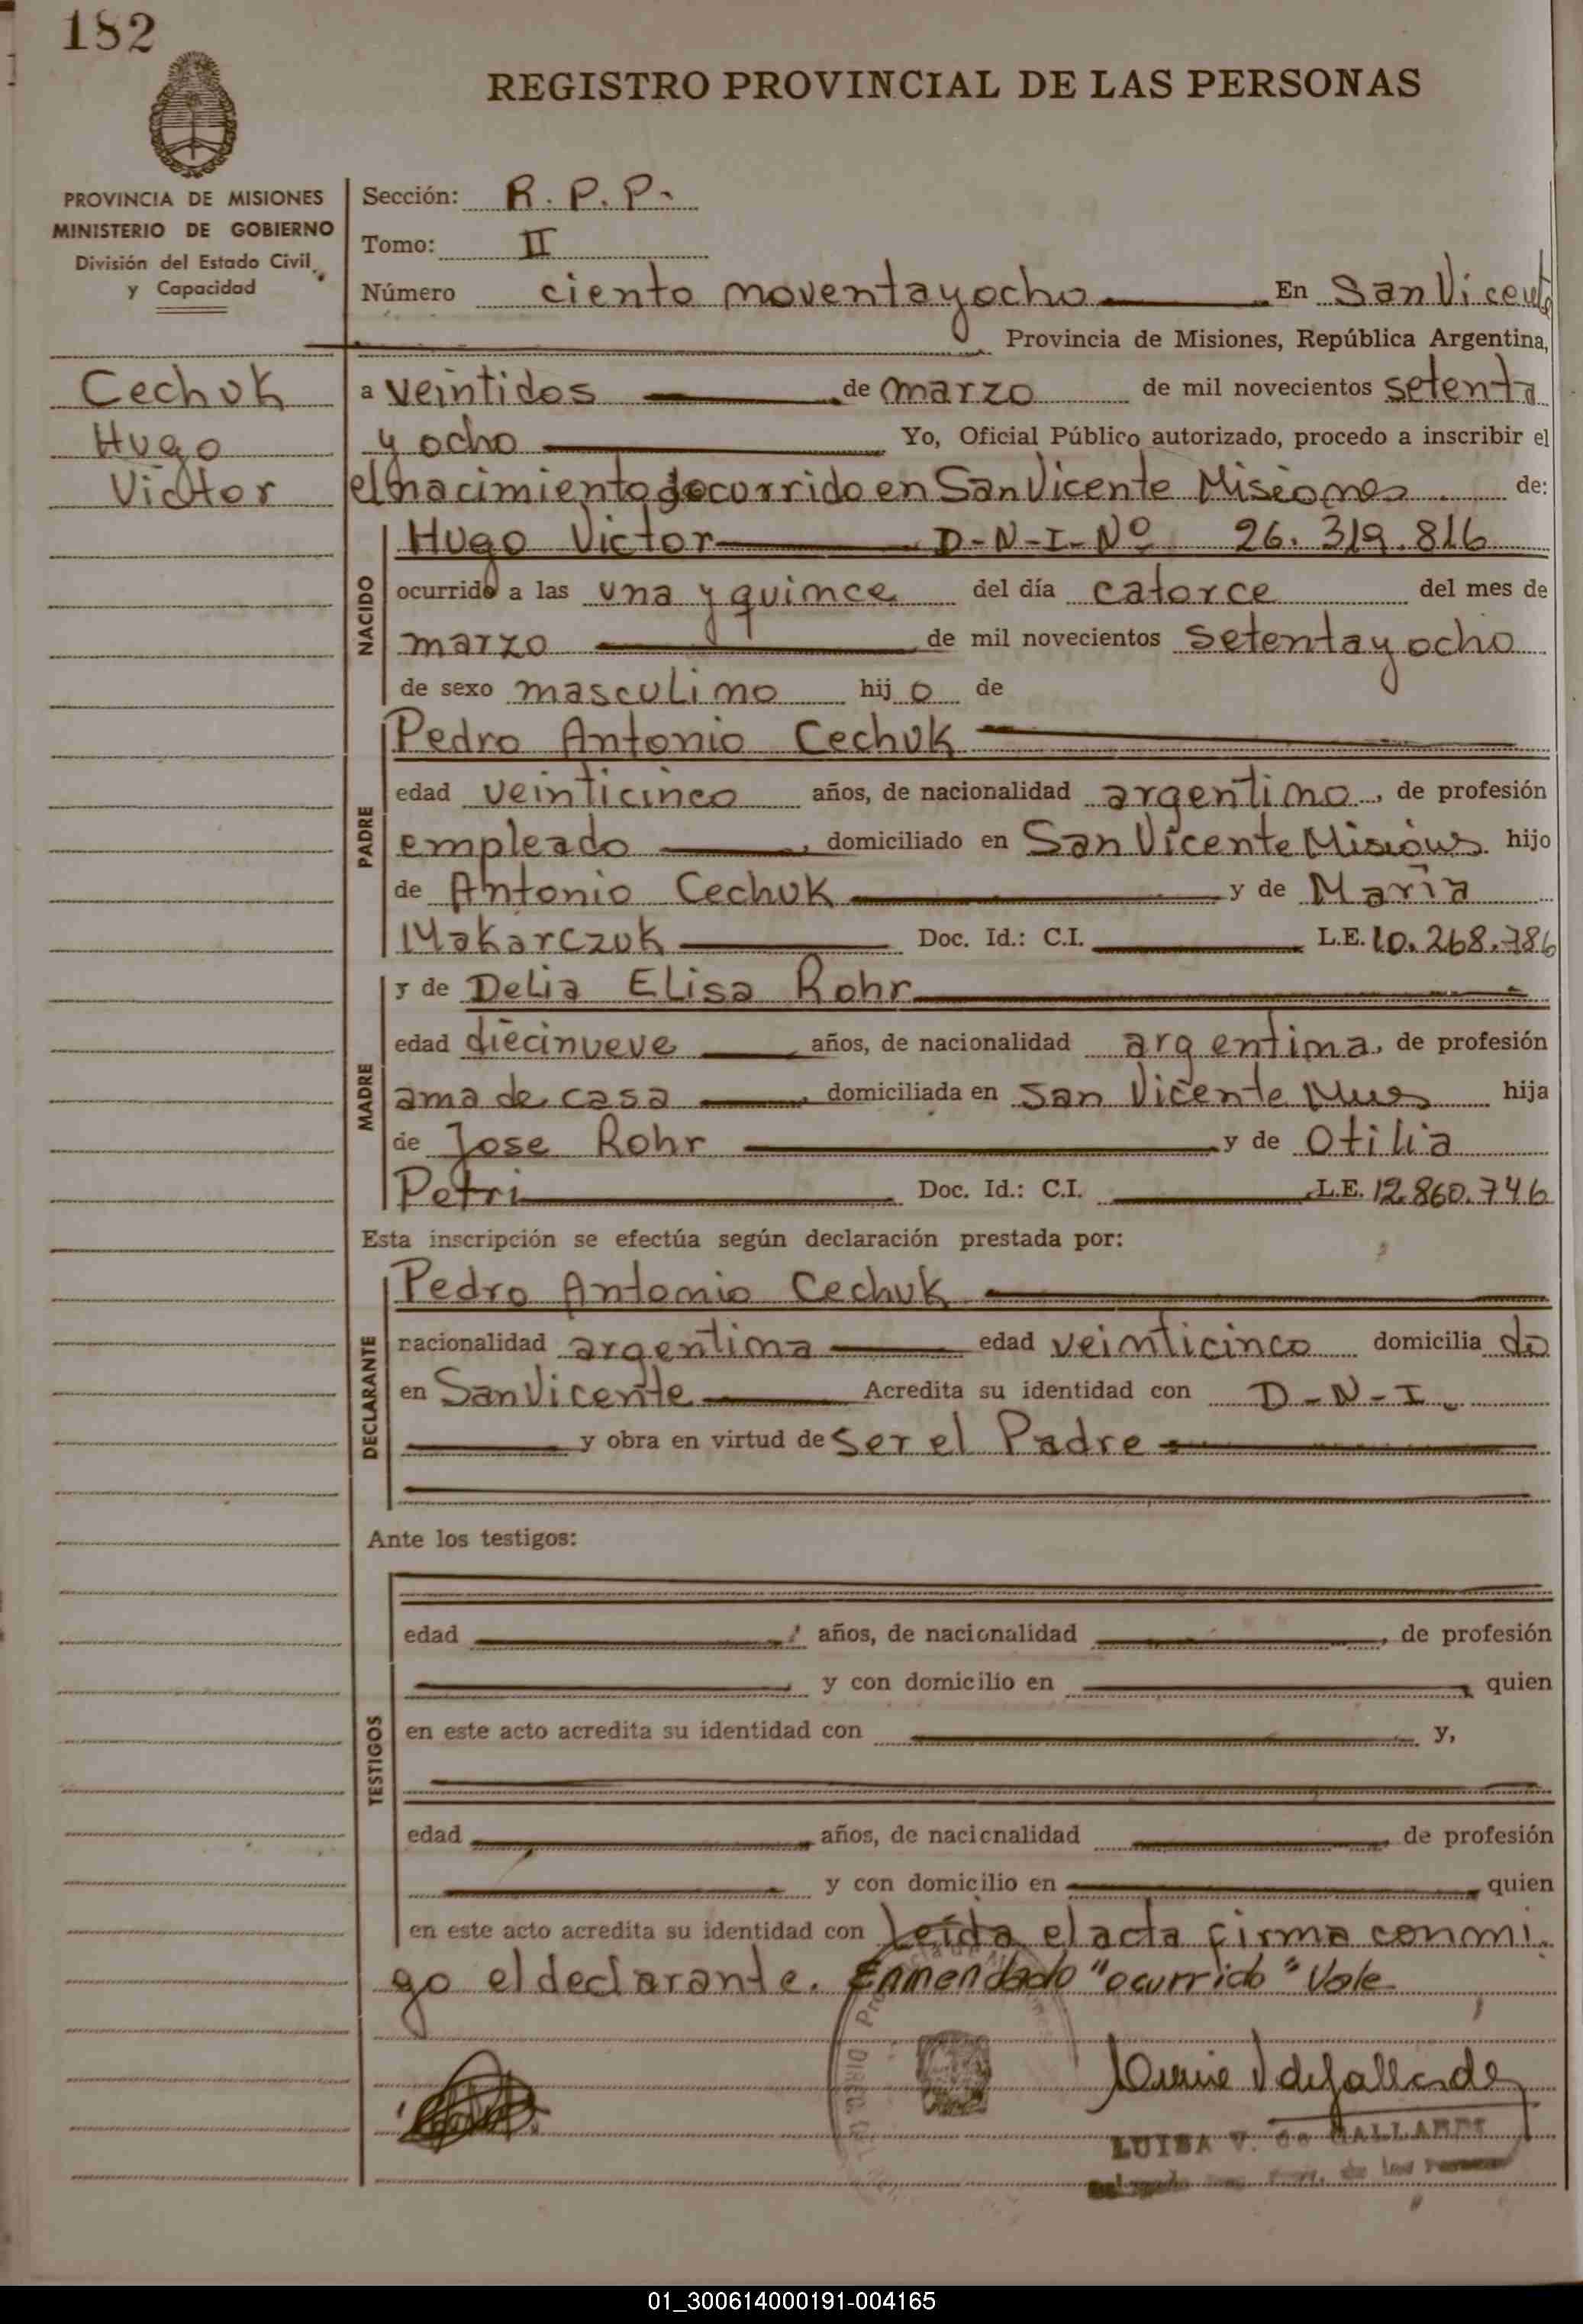 182
REGISTRO PROVINCIAL DE LAS PERSONAS
PROVINCIA DE MISIONES
MINISTERIO DE GOBIERNO
División del Estado Civil
y Capacidad
Cechuk
Hugo
Victor
Sección: R. P. P.
Tomo: II
Número ciento noventa y ocho En San Vicente
Provincia de Misiones, República Argentina,
a veintidos de marzo de mil novecientos setenta
y ocho Yo, Oficial Público autorizado, procedo a inscribir el
el nacimiento ocurrido en San Vicente Misiones de:
NACIDO
Hugo Victor D-N-I-Nº 26.319.816
ocurrido a las una y quince del día catorce del mes de
marzo de mil novecientos setenta y ocho
de sexo masculino hijo de
PADRE
Pedro Antonio Cechuk
edad veinticinco años, de nacionalidad argentino, de profesión
empleado, domiciliado en San Vicente Misiones hijo
de Antonio Cechuk y de María
Makarczuk Doc. Id.: C.I. L.E. 10.268.786
MADRE
y de Delia Elisa Rohr
edad diecinueve años, de nacionalidad argentina, de profesión
ama de casa, domiciliada en San Vicente Mnes hija
de Jose Rohr y de Otilia
Petri Doc. Id.: C.I. L.E. 12.860.746
Esta inscripción se efectúa según declaración prestada por:
DECLARANTE
Pedro Antonio Cechuk
nacionalidad argentina edad veinticinco domicilia do
en San Vicente Acredita su identidad con D-N-I
y obra en virtud de ser el Padre
Ante los testigos:
TESTIGOS
edad años, de nacionalidad, de profesión
y con domicilio en, quien
en este acto acredita su identidad con y,
edad años, de nacionalidad, de profesión
y con domicilio en, quien
en este acto acredita su identidad con Leída el acta firma conmi
go el declarante. Enmendado "ocurrido" Vale
LUISA V. de GALLARDE
01_300614000191-004165